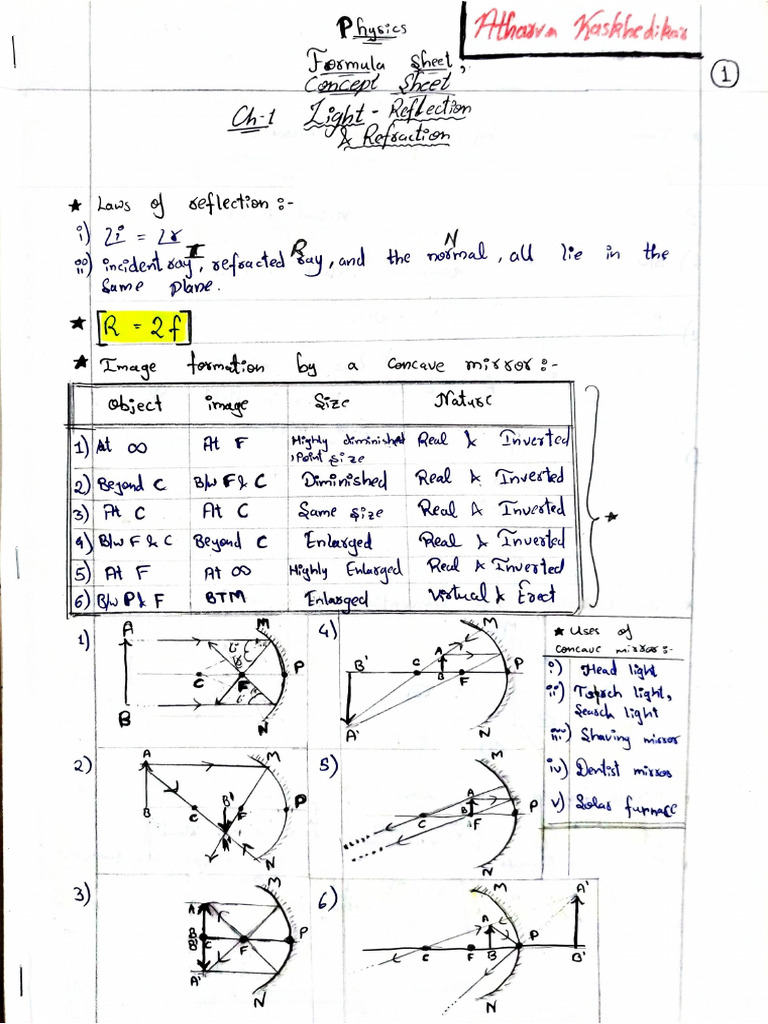 Physics
Atharva Kaskhedikar
1
Formula Sheet,
Concept Sheet
Ch-1 Light - Reflection
& Refraction
★ Laws of reflection :-
i) ∠i = ∠r
I R N
ii) incident ray, refracted ray, and the normal, all lie in the
same plane.
★ [R = 2f]
★ Image formation by a concave mirror :-
Object image Size Nature
1) At ∞ At F Highly diminished, Point size Real & Inverted
2) Beyond C B/w F & C Diminished Real & Inverted
3) At C At C Same size Real & Inverted
4) B/w F & C Beyond C Enlarged Real & Inverted
5) At F At ∞ Highly Enlarged Real & Inverted
6) B/w P & F BTM Enlarged Virtual & Erect
★
1) A B C F P M N i r
4) A B A' B' C F P M N
★ Uses of
concave mirror :-
i) Head light
ii) Torch light,
Search light
iii) Shaving mirror
iv) Dentist mirror
v) Solar furnace
2) A B C B' F P M N
5) A B C F P M N
3) A A' C F P M N
6) A B A' B' C F P M N